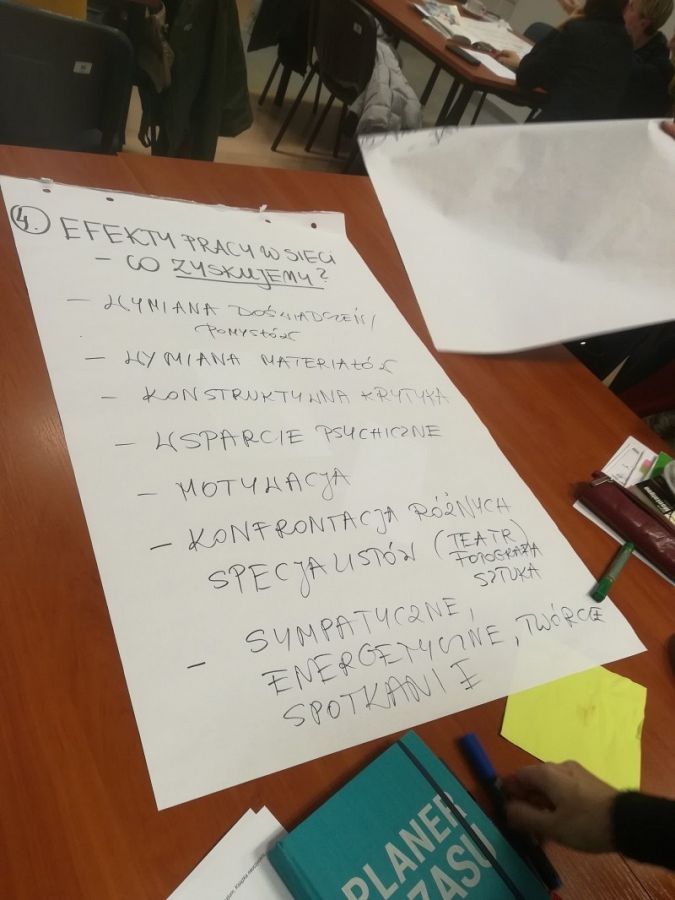 4. EFEKTY PRACY W SIECI
- CO ZYSKUJEMY?
- WYMIANA DOŚWIADCZEŃ/
POMYSŁÓW
- WYMIANA MATERIAŁÓW
- KONSTRUKTYWNA KRYTYKA
- WSPARCIE PSYCHICZNE
- MOTYWACJA
- KONFRONTACJA RÓŻNYCH
SPECJALISTÓW (TEATR)
FOTOGRAFIA
SZTUKA
- SYMPATYCZNE,
ENERGETYCZNE, TWÓRCZE
SPOTKANIE
PLANER
ZASU